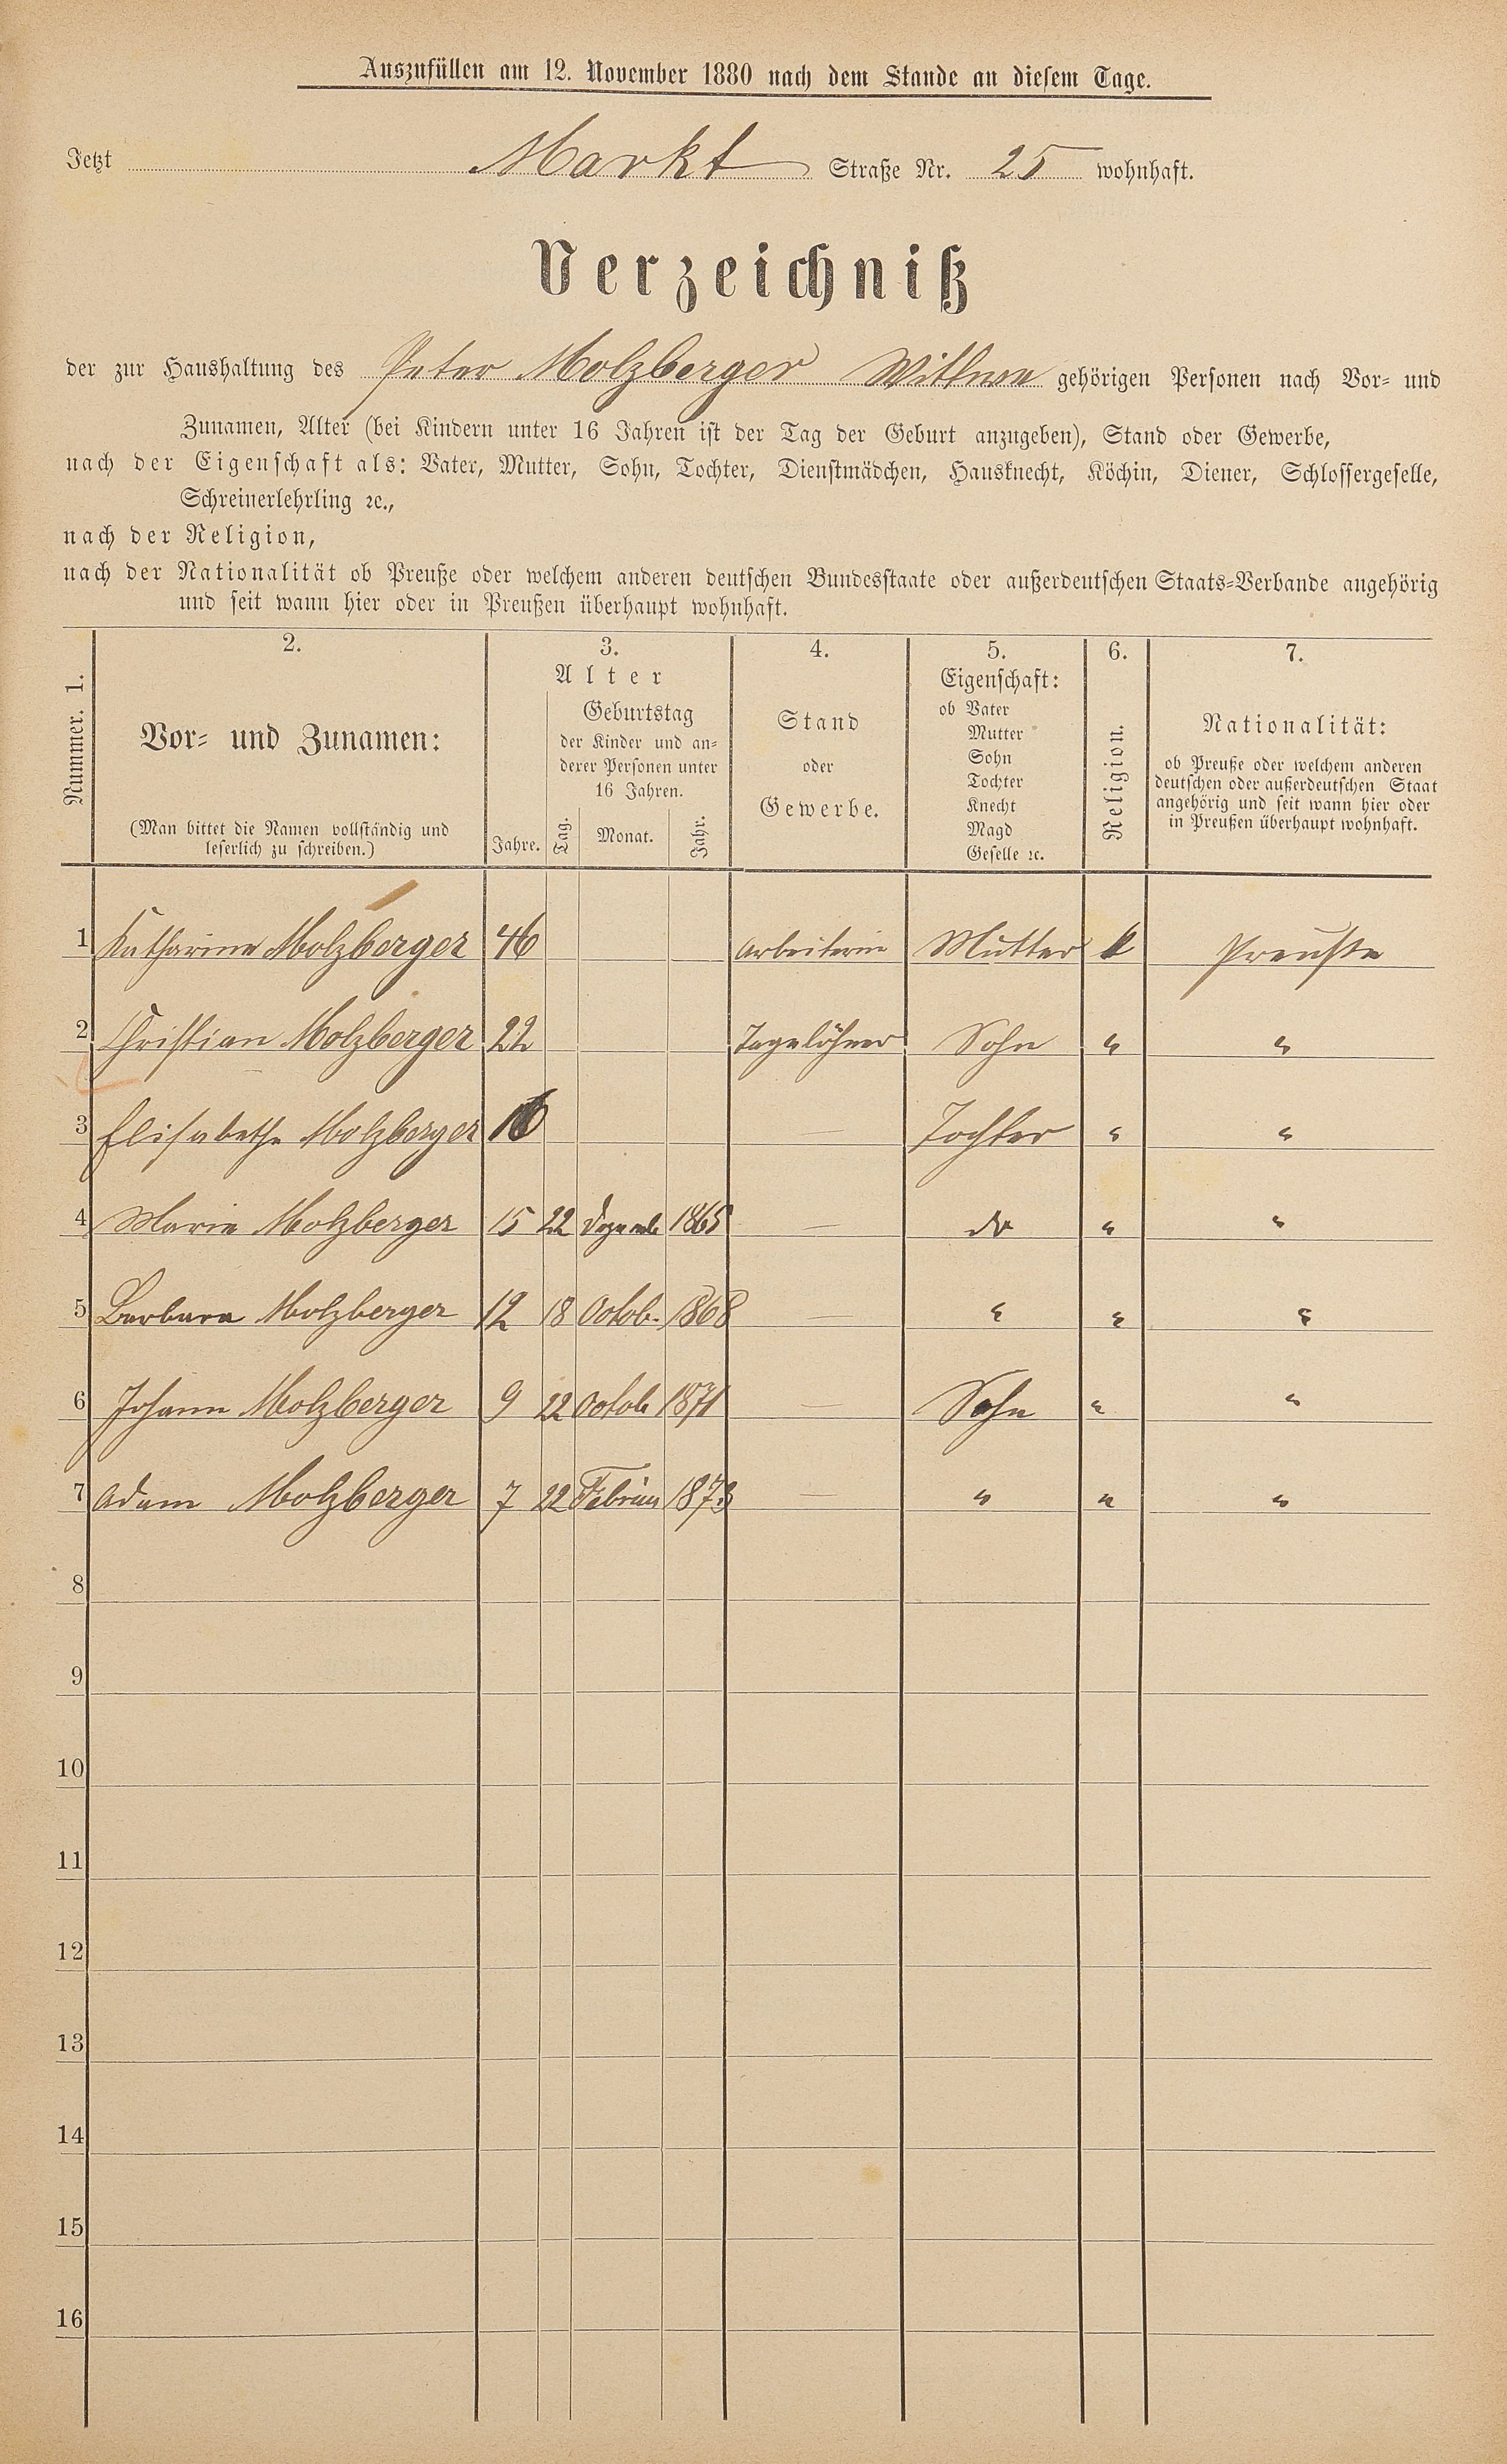 Auszufüllen am 12. November 1880 nach dem Stande an diesem Tage.
Jetzt Markt Straße Nr. 25 wohnhaft.
Verzeichniß
der zur Haushaltung des Peter Molzberger Wittwe gehörigen Personen nach Vor- und
Zunamen, Alter (bei Kindern unter 16 Jahren ist der Tag der Geburt anzugeben), Stand oder Gewerbe,
nach der Eigenschaft als: Vater, Mutter, Sohn, Tochter, Dienstmädchen, Hausknecht, Köchin, Diener, Schlossergeselle,
Schreinerlehrling ꝛc.,
nach der Religion,
nach der Nationalität ob Preuße oder welchem anderen deutschen Bundesstaate oder außerdeutschen Staats-Verbande angehörig
und seit wann hier oder in Preußen überhaupt wohnhaft.
Nummer. 1.
2.
Vor- und Zunamen:
(Man bittet die Namen vollständig und
leserlich zu schreiben.)
3.
Alter
Jahre.
Geburtstag
der Kinder und an-
derer Personen unter
16 Jahren.
Tag. Monat. Jahr.
4.
Stand
oder
Gewerbe.
5.
Eigenschaft:
ob Vater
Mutter
Sohn
Tochter
Knecht
Magd
Geselle ꝛc.
6.
Religion.
7.
Nationalität:
ob Preuße oder welchem anderen
deutschen oder außerdeutschen Staat
angehörig und seit wann hier oder
in Preußen überhaupt wohnhaft.
1 Katharina Molzberger 46 Arbeiterin Mutter k Preußen
2 Christian Molzberger 22 Tagelöhner Sohn " "
3 Elisabetha Molzberger 16 Tochter " "
4 Maria Molzberger 15 22 1865 — do " "
5 Barbara Molzberger 12 18 Octob. 1868 — " " "
6 Johann Molzberger 9 22 Octob 1871 — Sohn " "
7 Adam Molzberger 7 22 Februar 1873 — " " "
8
9
10
11
12
13
14
15
16